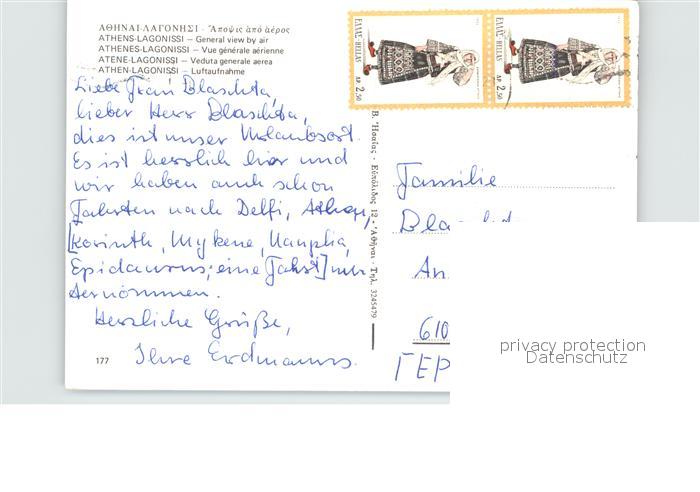 ΑΘΗΝΑΙ-ΛΑΓΟΝΗΣΙ - Ἄποψις ἀπὸ ἀέρος
ATHENS-LAGONISSI – General view by air
ATHENES-LAGONISSI – Vue générale aérienne
ATENE-LAGONISSI – Veduta generale aerea
ATHEN-LAGONISSI – Luftaufnahme
Liebe Frau Blaschta,
lieber Herr Blaschta,
dies ist unser Urlaubsort.
Es ist herrlich hier und
wir haben auch schon
Fahrten nach Delfi, Athen,
[Korinth, Mykene, Nauplia,
Epidaurus; eine Fahrt] unter
nommen.
Herzliche Grüße,
Ihre Erdmanns.
177
Β. Ἡσαΐας - Εὐπόλιδος 12 - Ἀθῆναι - Τηλ. 3245479
ΕΛΛΑΣ-HELLAS
ΔΡ. 2,50
ΕΛΛΑΣ-HELLAS
ΔΡ. 2,50
Familie
Bla
An
610
ΓΕΡ
privacy protection
Datenschutz